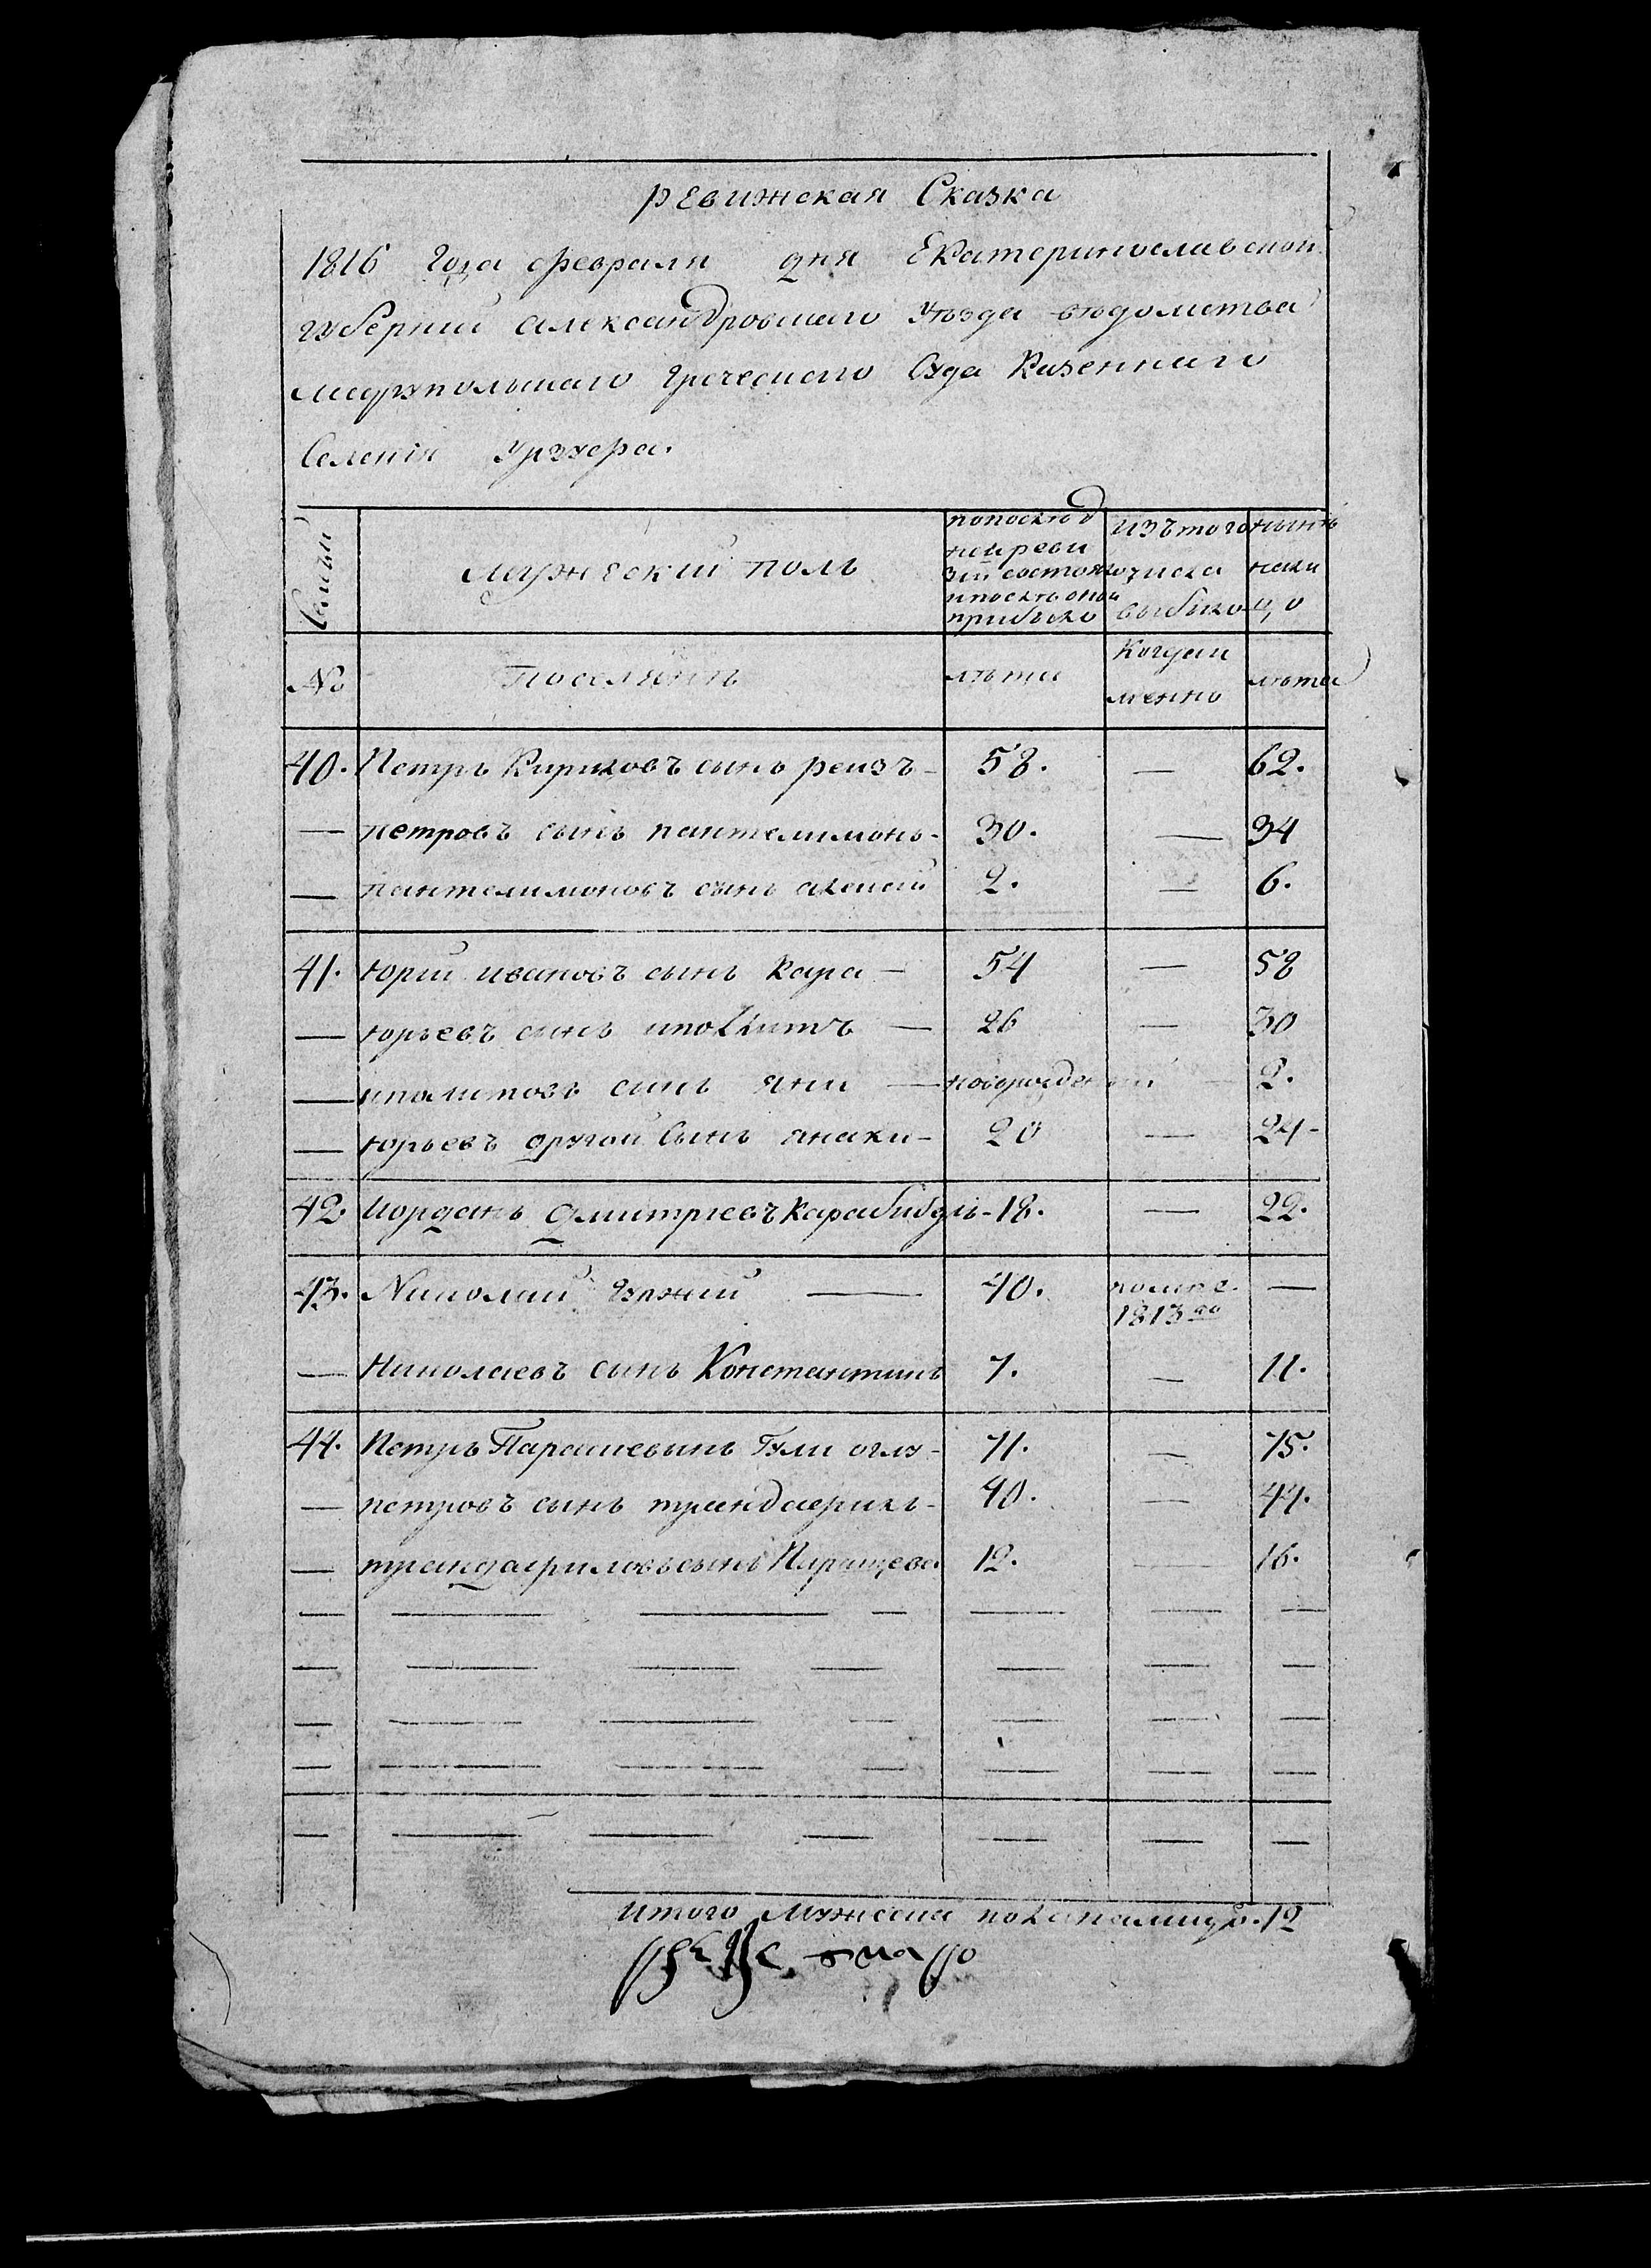 ревижская Сказка
1816 года февраля дня Екатеринославской
губернии александровскаго уѣзда вѣдомства
мариупольскаго греческаго Суда Казеннаго
Селения Урзуфа.
Семьи
мужеский полъ
попослѣд
ней реви
зіи состояло
ипослѣ оной
прибыло
изъ того
числа
выбыло
нынѣ
нали
цо
№
поселянѣ
лѣта
Когдаи
менно
лѣта
40. Петръ Кириковъ сынъ реизъ 58. — 62.
— петровъ сынъ пантелимонъ 30. — 34
— пантелимоновъ сынъ алексѣй 2. — 6.
41. Юрий ивановъ сынъ Кара — 54 — 58
— юрьевъ сынъ иполитъ — 26 — 30
— иполитовъ сынъ яни — новорожденный — 2.
— юрьевъ другой Сынъ янаки — 20 — 24
42 Иорданъ дмитриевъ карабибдль - 18. — 22.
43. Николай Гуржий — 40. помре. —
1813 го
— Николаевъ сынъ Константинъ 7. — 11.
44. Петръ Парашевынъ Гули оглу - 71. — 75.
— петровъ сынъ трандафилъ - 40. — 44.
— трандафиловъ сынъ Паращева 12. — 16.
итого мужеска пола налицо. 12